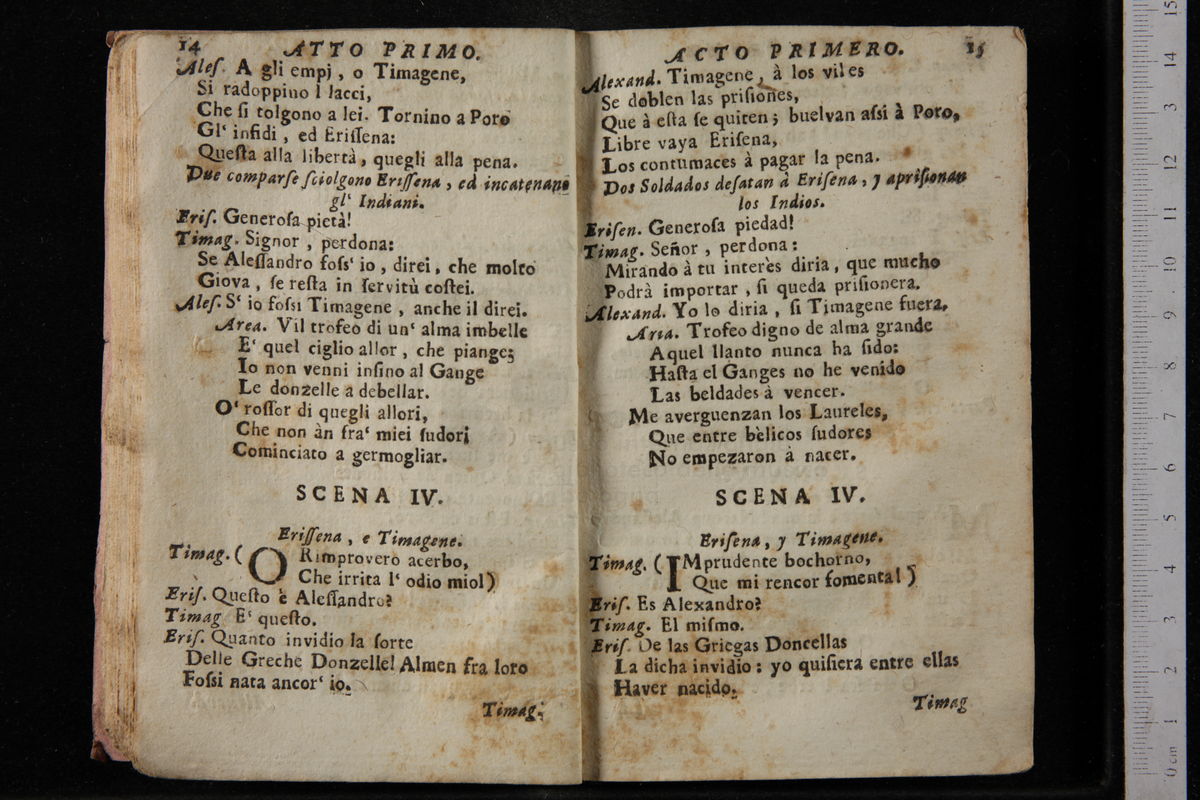 14 ATTO PRIMO.
Aleſ. A gli empj, o Timagene,
Si radoppino i lacci,
Che ſi tolgono a lei. Tornino a Poro
Gl' infidi, ed Eriſſena:
Queſta alla libertà, quegli alla pena.
Due comparſe ſciolgono Eriſſena, ed incatenano
gl' Indiani.
Eriſ. Generoſa pietà!
Timag. Signor, perdona:
Se Aleſſandro foſs' io, direi, che molto
Giova, ſe reſta in ſervitù coſtei.
Aleſ. S' io foſſi Timagene, anche il direi.
Area. Vil trofeo di un' alma imbelle
E' quel ciglio allor, che piange;
Io non venni inſino al Gange
Le donzelle a debellar.
O' roſſor di quegli allori,
Che non àn fra' miei ſudori
Cominciato a germogliar.
SCENA IV.
Eriſſena, e Timagene.
Timag. (O Rimprovero acerbo,
Che irrita l' odio mio!)
Eriſ. Queſto è Aleſſandro?
Timag E' queſto.
Eriſ. Quanto invidio la ſorte
Delle Greche Donzelle! Almen fra loro
Foſſi nata ancor' io.
Timag.
ACTO PRIMERO. 15
Alexand. Timagene, à los viles
Se doblen las priſiones,
Que à eſta ſe quiten; buelvan aſsi à Poro,
Libre vaya Eriſena,
Los contumaces à pagar la pena.
Dos Soldados deſatan à Eriſena, y apriſionan
los Indios.
Eriſen. Generoſa piedad!
Timag. Señor, perdona:
Mirando à tu interès diria, que mucho
Podrà importar, ſi queda priſionera.
Alexand. Yo lo diria, ſi Timagene fuera.
Aria. Trofeo digno de alma grande
Aquel llanto nunca ha ſido:
Haſta el Ganges no he venido
Las beldades à vencer.
Me averguenzan los Laureles,
Que entre bèlicos ſudores
No empezaron à nacer.
SCENA IV.
Eriſena, y Timagene.
Timag. (IMprudente bochorno,
Que mi rencor fomenta!)
Eriſ. Es Alexandro?
Timag. El miſmo.
Eriſ. De las Griegas Doncellas
La dicha invidio: yo quiſiera entre ellas
Haver nacido.
Timag
15
14
3
12
11
10
9
8
7
6
5
4
3
2
1
0 cm